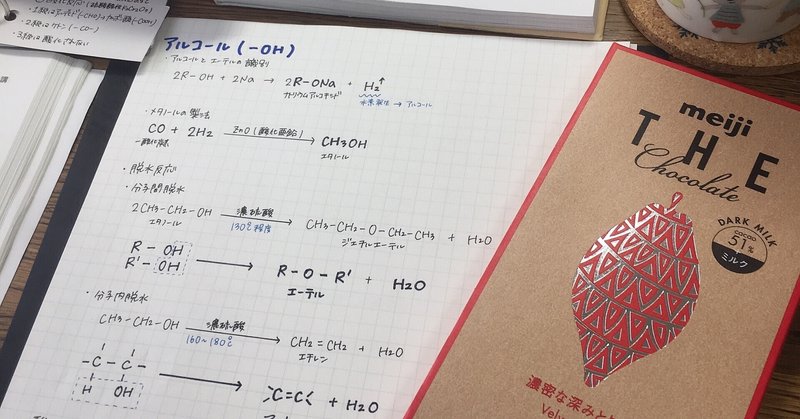 ・1級はアルデヒド(-CHO)→カルボン酸(-COOH)
・2級はケトン(-CO-)
・3級は酸化されない
アルコール(-OH)
・アルコールとエーテルの識別
2R-OH + 2Na → 2R-ONa + H₂↑
ナトリウムアルコキシド 水素発生 → アルコール
・メタノールの製法
CO + 2H₂ ZnO(酸化亜鉛)→ CH₃OH
一酸化炭素 メタノール
・脱水反応
・分子間脱水
2CH₃-CH₂-OH 濃硫酸 → CH₃-CH₂-O-CH₂-CH₃ + H₂O
エタノール 130℃程度 ジエチルエーテル
R-OH
R'-OH → R-O-R' + H₂O
エーテル
・分子内脱水
CH₃-CH₂-OH 濃硫酸 → CH₂=CH₂ + H₂O
160~180℃ エチレン
-C-C-
H OH → >C=C< + H₂O
講
meiji
THE
Chocolate
DARK MILK
cacao
51%
ミルク
濃密な深みと
Velv